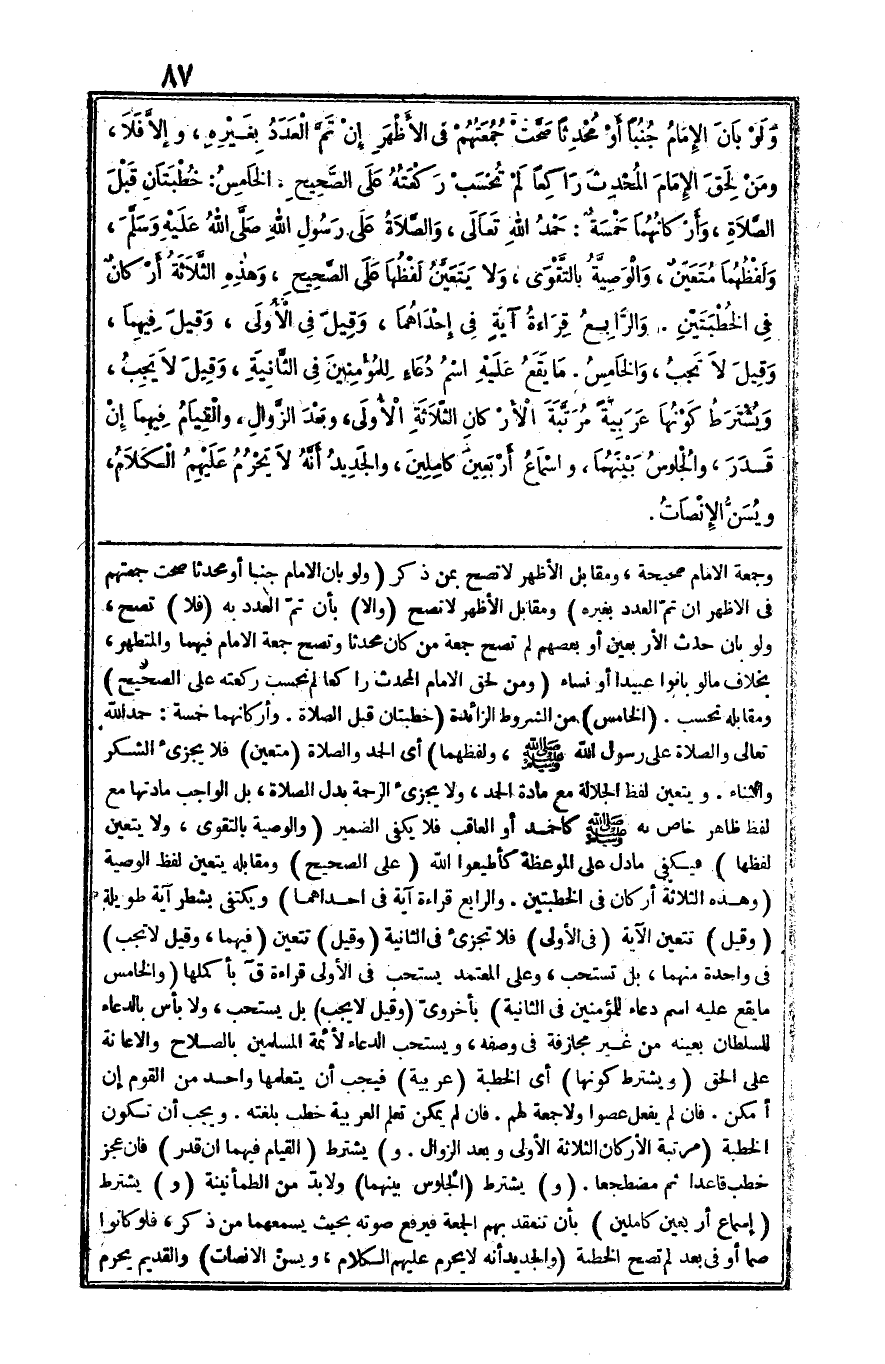 ٨٧
وَلَوْ بَانَ الإِمَامُ جُنُباً أَوْ مُحْدِثاً صَحَّتْ جُمُعَتُهُمْ فى الأَظْهَرِ إِنْ تَمَّ الْعَدَدُ بِغَيْرِهِ ، وإِلاَّ فَلاَ ،
ومَنْ لَحِقَ الإِمَامَ المُحْدِثَ رَاكِعاً لَمْ تُحْسَبْ رَكْعَتُهُ عَلَى الصَّحِيحِ . الخَامِسُ : خُطْبَتَانِ قَبْلَ
الصَّلاَةِ ، وَأَرْكَانُهُمَا خَمْسَةٌ : حَمْدُ اللهِ تَعَالَى ، وَالصَّلاَةُ عَلَى رَسُولِ اللهِ صَلَّى اللهُ عَلَيْهِ وَسَلَّمَ ،
وَلَفْظُهُمَا مُتَعَيِّنٌ ، وَالْوَصِيَّةُ بالتَّقْوَى ، وَلا يَتَعَيَّنُ لَفْظُهَا عَلَى الصَّحِيحِ ، وَهٰذِهِ الثَّلاَثَةُ أَرْكَانٌ
فِى الخُطْبَتَيْنِ . وَالرَّابِعُ قِرَاءَةُ آيَةٍ فِى إِحْدَاهُمَا ، وَقِيلَ فِى الْأُولَى ، وَقِيلَ فِيهِمَا ،
وَقِيلَ لاَ تَجِبُ ، وَالخَامِسُ . مَا يَقَعُ عَلَيْهِ اسْمُ دُعَاءٍ لِلْمُؤْمِنِينَ فى الثَّانِيَةِ ، وَقِيلَ لاَ يَجِبُ ،
وَيُشْتَرَطُ كَوْنُهَا عَرَبِيَّةً مُرَتَّبَةَ الْأَرْكَانِ الثَّلاَثَةِ الْأُولَى ، وبَعْدَ الزَّوَالِ ، والْقِيَامُ فِيهِمَا إِنْ
قَدَرَ ، والْجُلُوسُ بَيْنَهُمَا ، وإسْمَاعُ أَرْبَعِينَ كامِلِينَ ، والجَدِيدُ أَنَّهُ لاَ يَحْرُمُ عَلَيْهِمُ الْكَلاَمُ ،
ويُسَنُّ الإِنْصَاتُ .
وجمعة الامام صحيحة ، ومقابل الأظهر لا تصح بمن ذكر ( ولو بان الامام جنبا أو محدثا صحت جمعتهم
فى الاظهر ان تم العدد بغيره ) ومقابل الأظهر لا تصح ( والا ) بأن تمّ العدد به ( فلا ) تصح ،
ولو بان حدث الأربعين أو بعضهم لم تصح جمعة من كان محدثا وتصح جمعة الامام فيهما والمتطهر ،
بخلاف مالو بانوا عبيدا أو نساء ( ومن لحق الامام المحدث راكعا لم تحسب ركعته على الصحيح )
ومقابله تحسب . ( الخامس ) من الشروط الزائدة ( خطبتان قبل الصلاة . وأركانهما خمسة : حمد الله
تعالى والصلاة على رسول الله ﷺ ، ولفظهما ) أى الحمد والصلاة ( متعين ) فلا يجزىء الشكر
والثناء . ويتعين لفظ الجلالة مع مادة الحمد ، ولا يجزىء الرحمة بدل الصلاة ، بل الواجب مادتها مع
لفظ ظاهر خاص به ﷺ كأحمد أو العاقب فلا يكفى الضمير ( والوصية بالتقوى ، ولا يتعين
لفظها ) فيكفي مادل على الموعظة كأطيعوا الله ( على الصحيح ) ومقابله يتعين لفظ الوصية
( وهذه الثلاثة أركان فى الخطبتين . والرابع قراءة آية فى احداهما ) ويكتفى بشطر آية طويلة
( وقيل ) تتعين الآية ( فى الأولى ) فلا تجزىء فى الثانية ( وقيل ) تتعين ( فيهما ، وقيل لا تجب )
فى واحدة منهما ، بل تستحب ، وعلى المعتمد يستحب فى الأولى قراءة قۤ بأكملها ( والخامس
مايقع عليه اسم دعاء للمؤمنين فى الثانية ) بأخروىّ ( وقيل لايجب ) بل يستحب ، ولا بأس بالدعاء
للسلطان بعينه من غير مجازفة فى وصفه ، ويستحب الدعاء لأئمة المسلمين بالصلاح والاعانة
على الحق ( ويشترط كونها ) أى الخطبة ( عربية ) فيجب أن يتعلمها واحد من القوم إن
أمكن . فان لم يفعل عصوا ولا جمعة لهم . فان لم يمكن تعلم العربية خطب بلغته . ويجب أن تكون
الخطبة ( مرتبة الأركان الثلاثة الأولى وبعد الزوال . و ) يشترط ( القيام فيهما ان قدر ) فان عجز
خطب قاعدا ثم مضطجعا . ( و ) يشترط ( الجلوس بينهما ) ولابدّ من الطمأنينة ( و ) يشترط
( إسماع أربعين كاملين ) بأن تنعقد بهم الجمعة فيرفع صوته بحيث يسمعهما من ذكر ، فلو كانوا
صما أو فى بعد لم تصح الخطبة ( والجديد أنه لايحرم عليهم الكلام ، ويسنّ الانصات ) والقديم يحرم